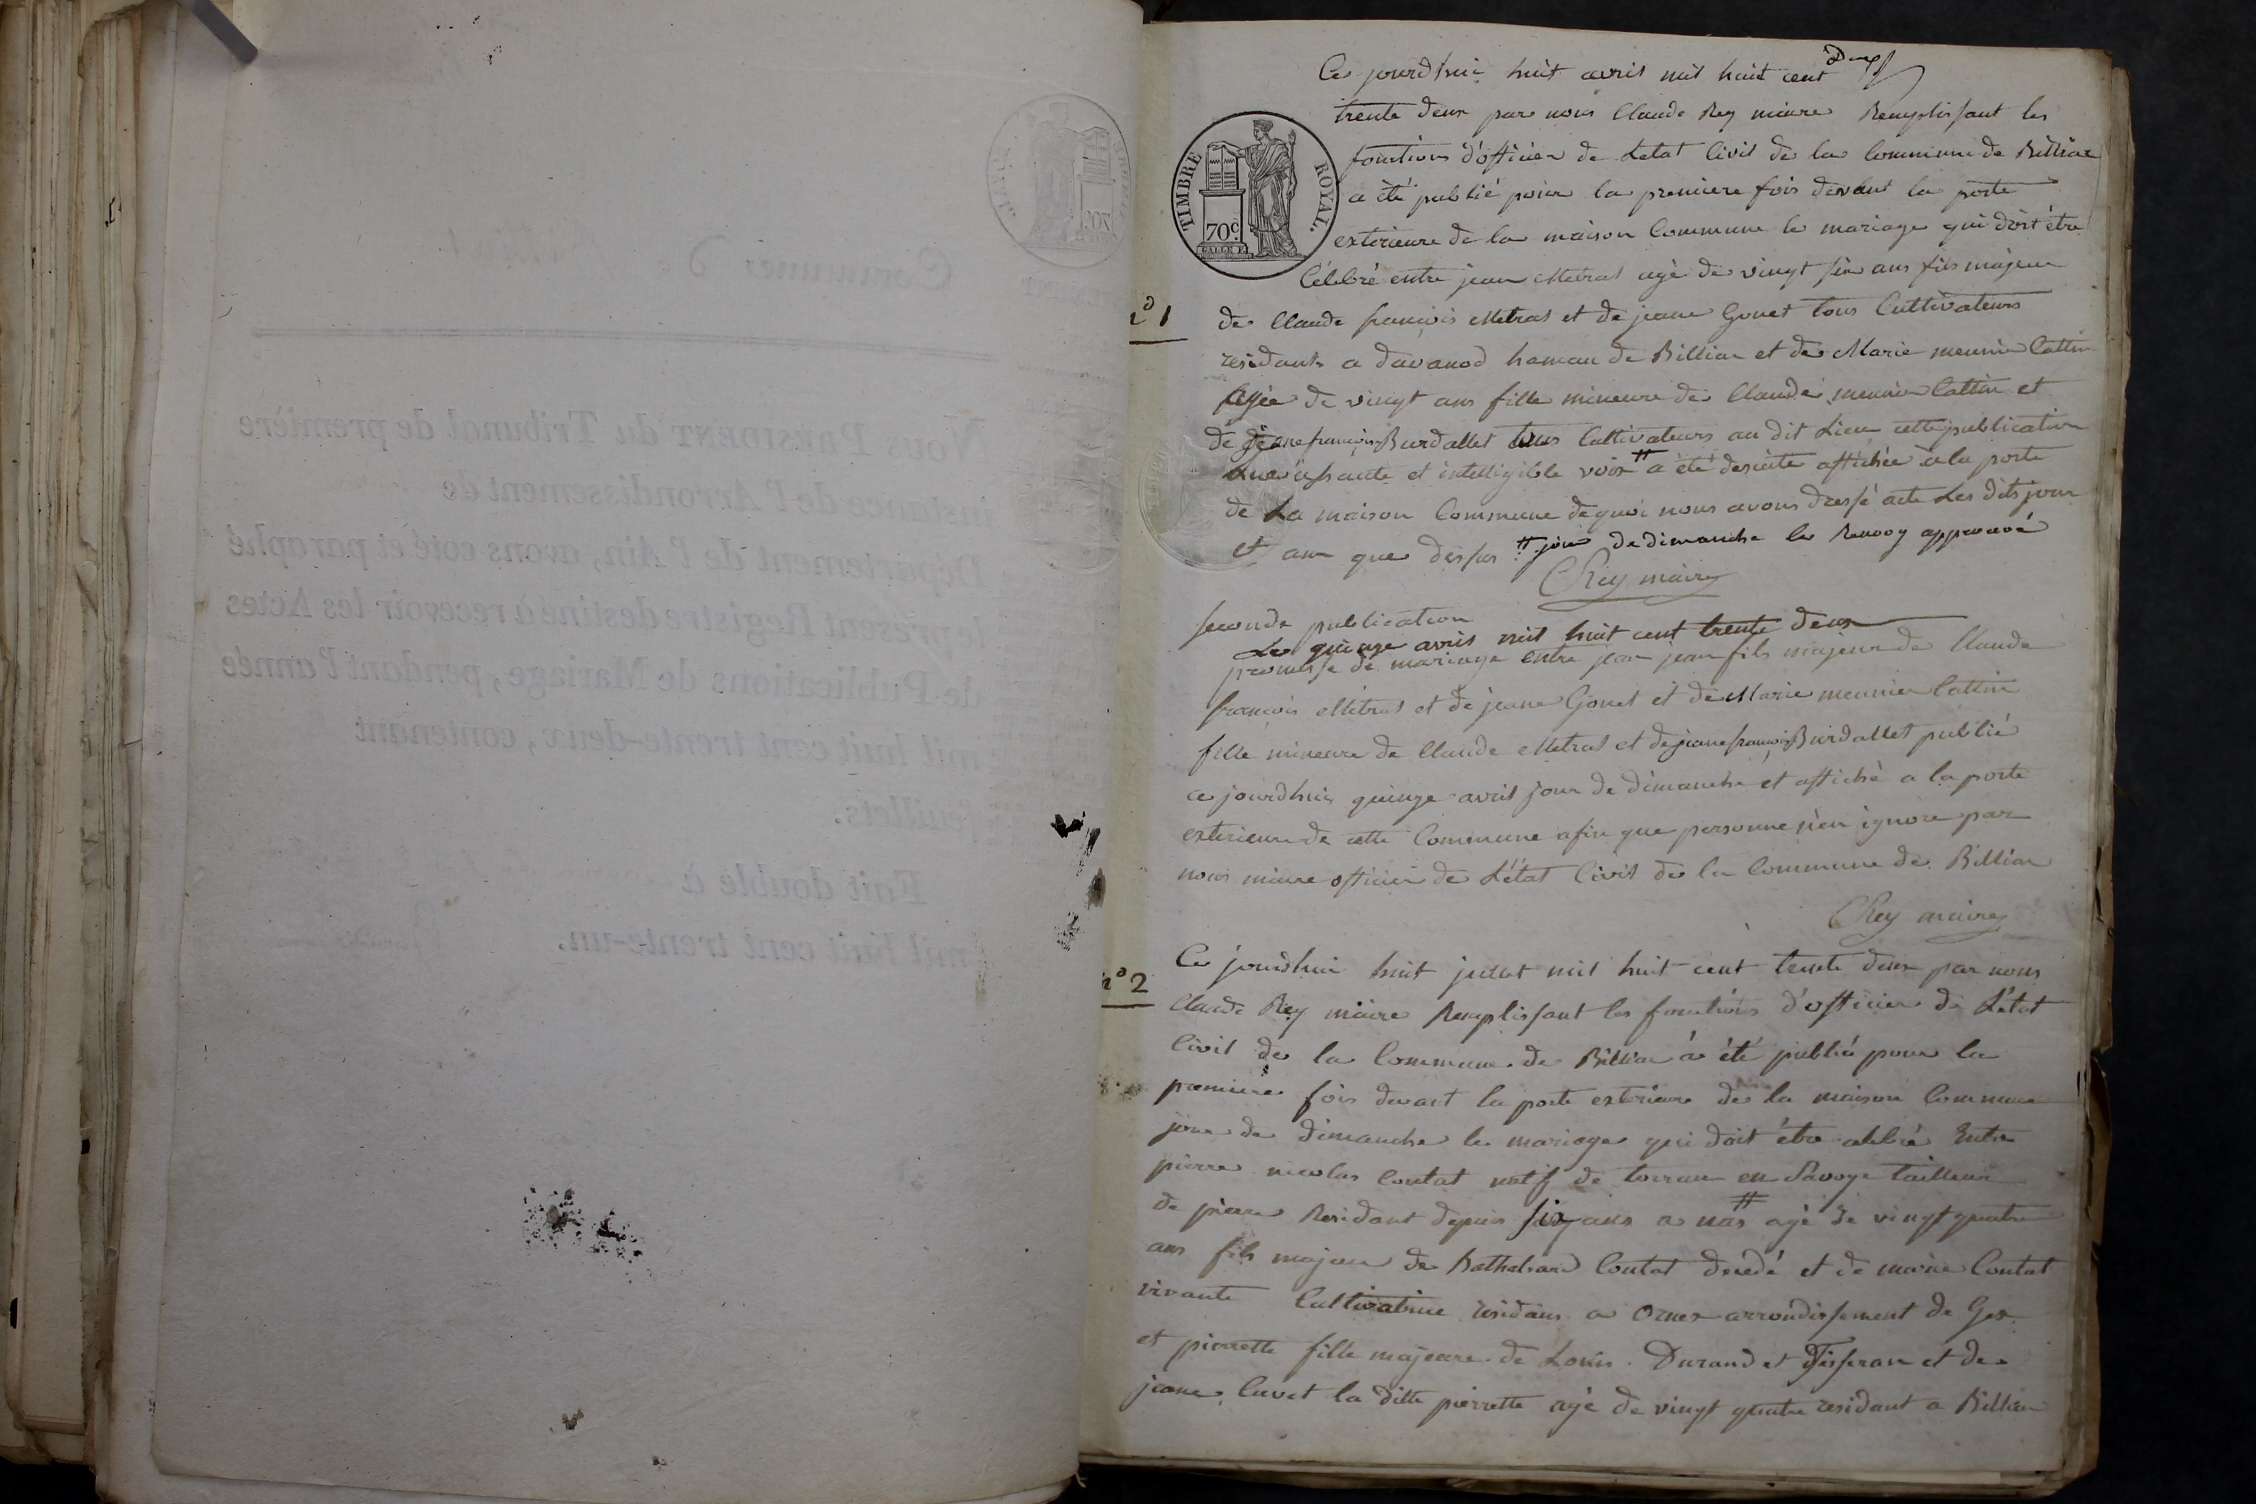 Ce jourdhui huit avril mil huit cent
trente deux par nous Claude Rey maire Remplissant les
fonctions d'officier de Letat Civil de la Commune de Billiat
a été publié pour la premiere fois devant la porte
exterieure de la maison Commune le mariage qui doit être
Célébré entre jean Metral agé de vingt six ans fils majeur
TIMBRE ROYAL.
70c.
n° 1
de Claude françois Metral et de jeane Gonet tous Cultivateurs
residants a davanod hamau de Billiat et de Marie meunier Cattin
agée de vingt ans fille mineure de Claude meunier Cattin et
de jeane françoise Burdallet tous Cultivateurs au dit Lieu cette publication
et intelligible voix # a été desuite affichée a la porte
de La maison Commune de quoi nous avons dressé acte Les dits jour
et an que dessus # jour de dimanche le Renvoy approuvé
CRey maire
seconde publication
Le quinze avril mil huit cent trente deux
promesse de mariage entre jean fils majeur de Claude
françois Métral et de jeane Gonet et de Marie meunier Cattin
fille mineure de Claude Metral et de jeane françoise Burdallet publié
ce jourdhui quinze avril jour de dimanche et affiché a la porte
exterieure de cette Commune afin que personne n'en ignore par
nous maire officier de L'état Civil de la Commune de Billiat
CRey maire
n° 2
Ce jourdhui huit juillet mil huit cent trente deux par nous
Claude Rey maire Remplissant les fonctions d'officier de L'état
Civil de la Commune de Billiat a été publié pour la
premiere fois devant la porte exterieure de la maison Commune
jour de dimanche le mariage qui doit être célébré Entre
pierre nicolas Contat natif de en Savoye tailleur
de pierre Residant depuis six ans a # agé de vingt quatre
ans fils majeur de Contat décédé et de marie Contat
vivante Cultivatrice residant a Ornex arrondissement de Gex
et pierrette fille majeure de Louis Durand et et de
jeane Cuvet la ditte pierrette agé de vingt quatre residant a Billiat
Commune
Nous PRÉSIDENT du Tribunal de première
instance de l'Arrondissement de
Département de l'Ain, avons coté et paraphé
le présent Registre destiné à recevoir les Actes
de Publications de Mariage, pendant l'année
mil huit cent trente-deux, contenant
feuillets.
Fait double à
mil huit cent trente-un.